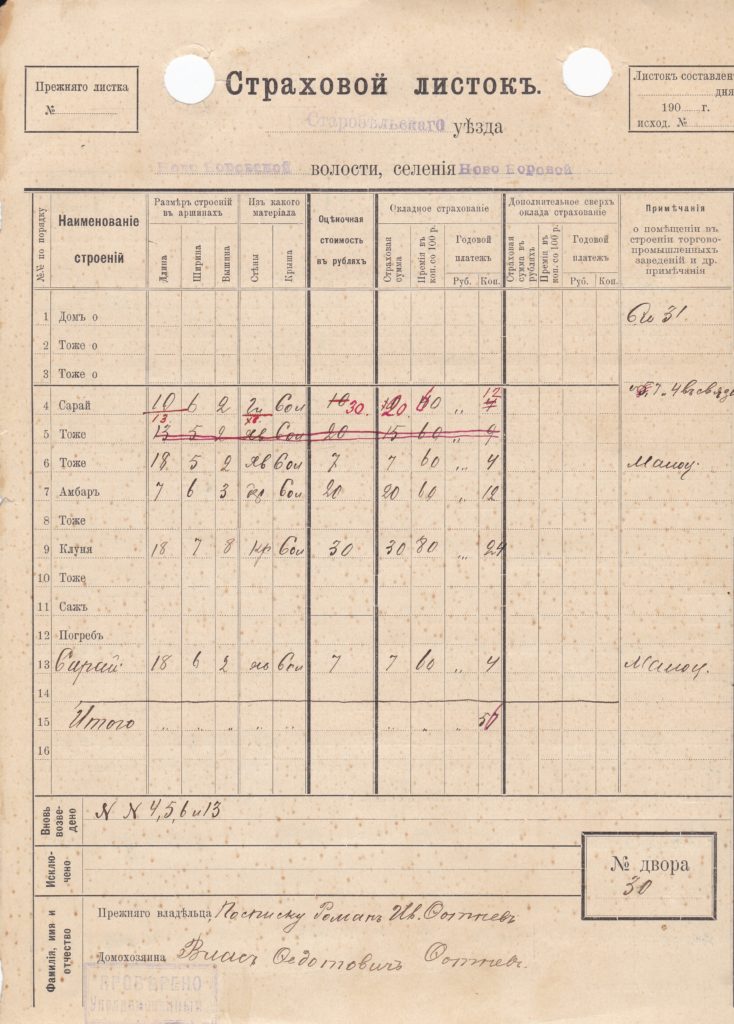 Прежняго листка
№
Страховой листокъ.
Листокъ составлен
дня
190 г.
исход. №
Старобѣльскаго уѣзда
волости, селенія Ново Боровой
№№ по порядку
Наименованіе строеній
Размѣръ строеній въ аршинахъ
Длина
Ширина
Вышина
Изъ какого матеріала
Стѣны
Крыша
Оцѣночная стоимость въ рубляхъ
Окладное страхованіе
Страховая сумма
Премія въ коп. со 100 р.
Годовой платежъ
Руб. Коп.
Дополнительное сверхъ оклада страхованіе
Страховая сумма въ рубляхъ
Премія въ коп. со 100 р.
Годовой платежъ
Руб. Коп.
Примѣчанія
о помѣщеніи въ строеніи торгово-промышленныхъ заведеній и др. примѣчанія
1 Домъ о 31
2 Тоже о
3 Тоже о
4 Сарай 10 6 2 Сол 30. 20 12
13
5 Тоже 13 5 2 Сол 20 15 60 „ 9
6 Тоже 18 5 2 Сол 7 7 60 „ 4
7 Амбаръ 7 6 3 Сол 20 20 60 „ 12
8 Тоже
9 Клуня 18 7 8 Сол 30 30 80 „ 24
10 Тоже
11 Сажъ
12 Погребъ
13 Сарай 18 6 2 Сол 7 7 60 „ 4
14
15 Итого „ „ „ „ „ „ „ „ 56
16
Вновь возведено
N N 4, 5, 6 и 13
Исключено
№ двора
30
Фамилія, имя и отчество
Прежняго владѣльца Романъ Ив.
Домохозяина Власъ Ѳедотовичъ